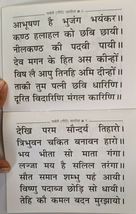 आभूषण हैं भुजंग भयंकर।
कण्ठ हलाहल को छबि छायी
नीलकण्ठ की पदवी पायी।
देव मगन के हित अस कीन्हों
विष लै आपु तिनहि अमि दीन्हों
ताकी तुम पत्नी छवि धारिणि
दूरित विदारिणि मंगल कारिणि।
देखि परम सौन्दर्य तिहारो
त्रिभुवन चकित बनावन हारो।
भय भीता सो माता गंगा।
लज्जा मय है सलिल तरंगा।
सौत समान शम्भु पहं आयी।
विष्णु पदाब्ज छोड़ि सो धायी।
तेहि कों कमल बदन मुरझायो।